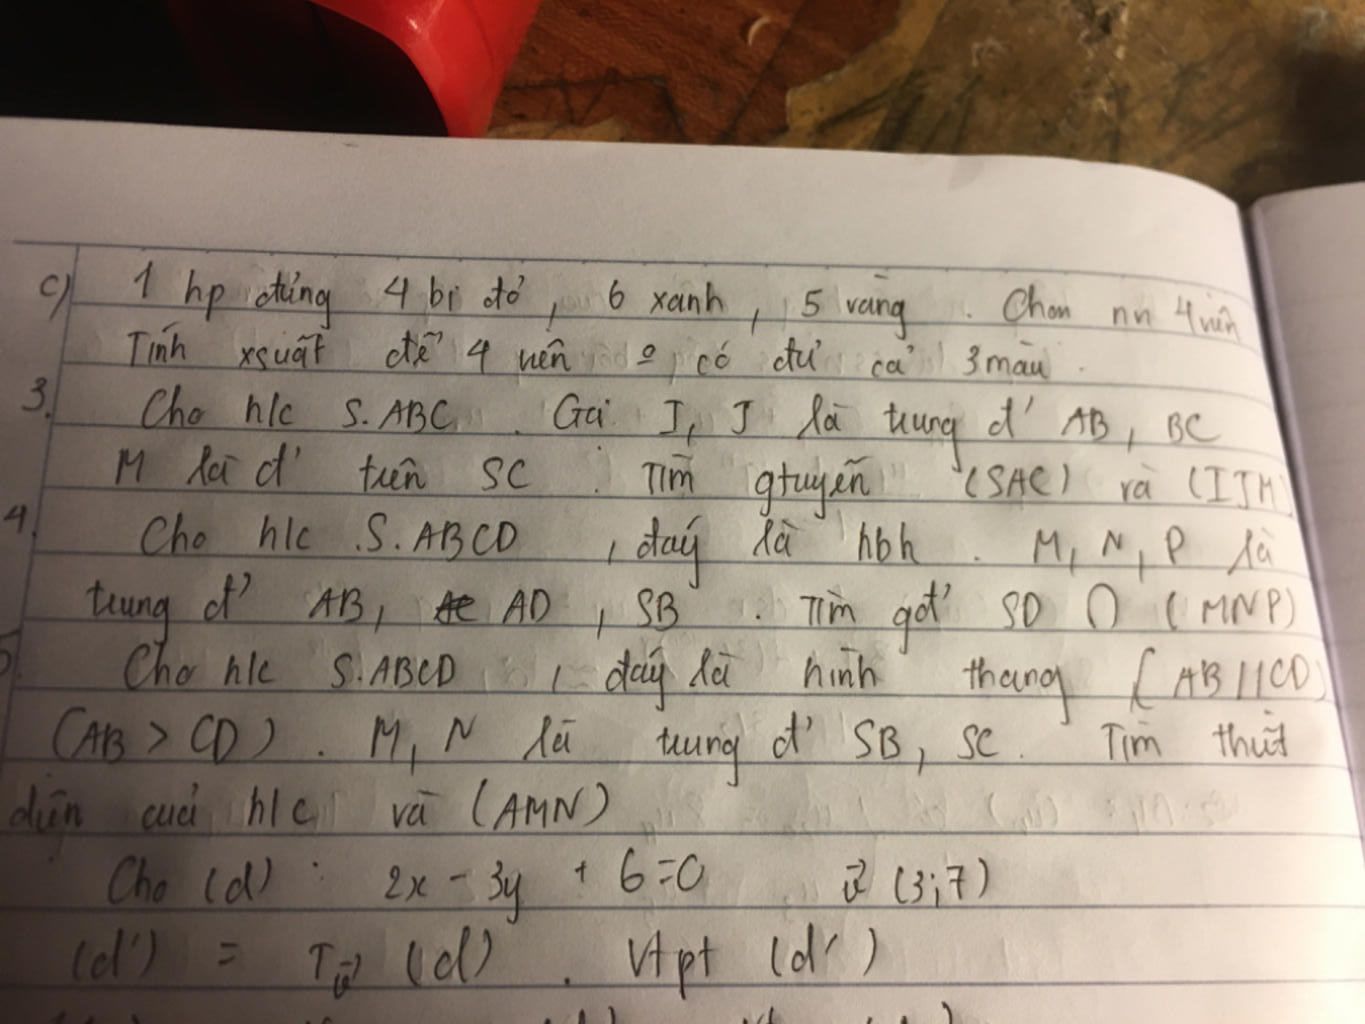 c) 1 hp đứng 4 bi đỏ, 6 xanh, 5 vàng. Chọn nn 4 viên
Tính xsuất để 4 viên có đủ cả 3 màu.
3. Cho h/c S.ABC. Gọi I, J là trung đ' AB, BC
M là đ' trên SC. Tìm gtuyến (SAC) và (IJM)
4. Cho h/c S.ABCD, đáy là hbh. M, N, P là
trung đ' AB, AD, SB. Tìm gđ' SD ∩ (MNP)
5. Cho h/c S.ABCD, đáy là hình thang (AB//CD)
(AB > CD). M, N là trung đ' SB, SC. Tìm thiết
diện của h/c và (AMN)
Cho (d): 2x - 3y + 6=0 v⃗ (3;7)
(d') = Tv⃗ (d). Vtpt (d')